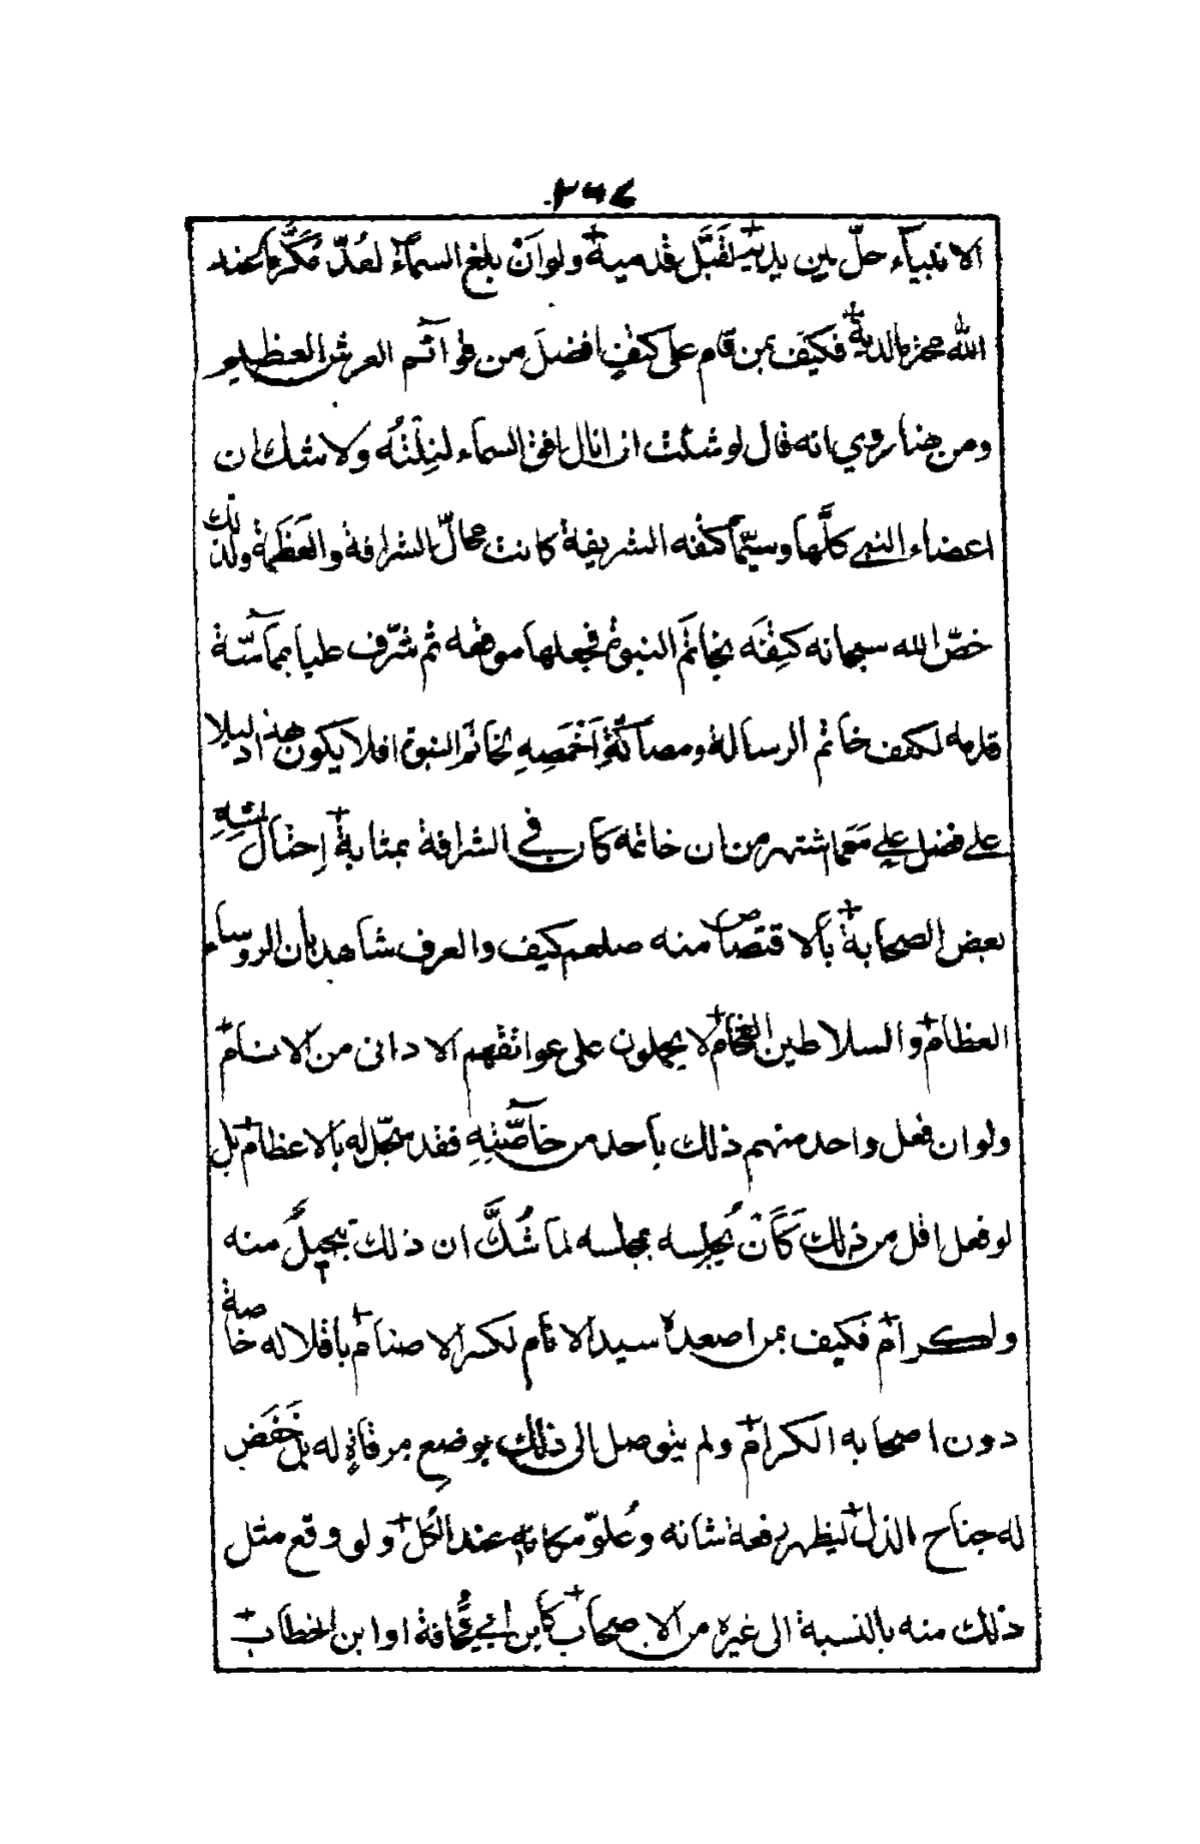 ٢٦٧
الانبياء حلّ بين يديه لقَبَّل قدميه ولو اَنْ بلغ السماء لعُدّ مُكَرَّما عند
الله معززا لديه فكيف بمن قام على كتفٍ افضلَ من قوائم العرش العظيم
ومن هنا روي انه قال لو شئت ان انال افق السماء لنِلْتُه ولا شك ان
اعضاء النبي كلَّها وسيّما كتفه الشريفة كانت محالّ الشرافة والعَظَمة ولذلك
خصّ الله سبحانه كتِفَه بخاتَم النبوة فجعلها موضعه ثم شرّف عليا بمماسّة
قدمه لكتف خاتم الرسالة ومصاكّةِ اَخمَصِهِ لخاتَم النبوة افلا يكون هذا دليلا
على فضل علي مَعَ ما اشتهر من ان خاتمه كان في الشرافة بمثابة اِحتال لمسّهِ
بعض الصحابة بالاقتصاص منه صلعم كيف والعرف شاهد بأن الروساء
العظام والسلاطين الفخام لا يحملون على عواتقهم الاداني من الانام
ولو ان فعل واحد منهم ذلك بأحد من خاصّتِهِ فقد سجّل له بالاعظام بل
لو فعل اقل من ذلك كَاَنْ يُجلِسه مجلسه لما شُكَّ ان ذلك تبجيلٌ منه
واكرام فكيف بمن اصعده سيد الانام لكسر الاصنام باقلاله خاصة
دون اصحابه الكرام ولم يتوصل الى ذلك بوضع مرقاةٍ له بل خَفَض
له جناح الذل ليظهر رفعة شانه وعُلوّ مكانه عند الكُل ولو وقع مثل
ذلك منه بالنسبة الى غيره من الاصحاب كابن ابي قُحافة او ابن الخطاب